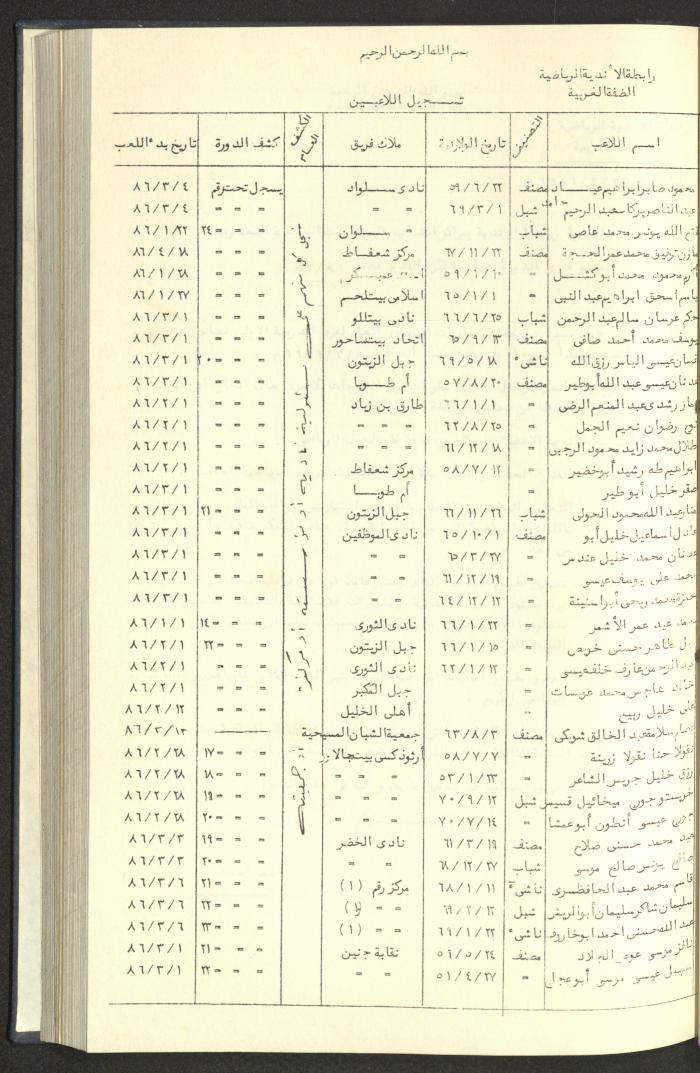 بسم الله الرحمن الرحيم
رابطة الأندية الرياضية
الضفة الغربية
تسجيل اللاعبين
اسم اللاعب التصنيف تاريخ الولادة ملاك فريق الكشف كشف الدورة تاريخ بدء اللعب
محمود صابر ابراهيم عياد مصنف ٥٩/٦/٢٢ نادى سلواد يسجل تحت رقم ٨٦/٣/٤
عبد الناصر بركات عبد الرحيم حامد شبل ٦٩/٣/١ = = = = = ٨٦/٣/٤
الله يونس محمد عاصي شباب = سلوان = = = ٢٤ ٨٦/١/٢٢
مازن توفيق محمد عمر الحجة مصنف ٦٧/١١/٢٢ مركز شعفاط = = = ٨٦/٤/١٨
أكرم محمود محمد أبو كشل = ٥٩/١/١٠ = = = ٨٦/١/٢٨
باسم اسحق ابراهيم عبد النبي = ٦٥/١/١ اسلامي بيتلحم = = = ٨٦/١/٢٧
حكم عرسان سالم عبد الرحمن شباب ٦٦/٦/٢٥ نادى بيتللو = = = ٨٦/٣/١
يوسف محمد أحمد صافى مصنف ٦٥/٩/١٣ اتحاد بيتساحور = = = ٨٦/٣/١
غسان عيسى الياس رزق الله ناشىء ٦٩/٥/١٨ جبل الزيتون = = = ٢٠ ٨٦/٣/١
عدنان عيسى عبد الله أبو طير مصنف ٥٧/٨/٢٠ أم طوبا = = = ٨٦/٣/١
رشدى عبد المنعم الرضي = ٦٦/١/١ طارق بن زياد = = = ٨٦/٢/١
رضوان نعيم الجمل = ٦٢/٨/٢٥ = = = = = = ٨٦/٢/١
طلال محمد زايد محمود الرجبي = ٦١/١٢/١٨ = = = = = = ٨٦/٢/١
ابراهيم طه رشيد أبو خضير = ٥٨/٧/١٢ مركز شعفاط = = = ٨٦/٢/١
صقر خليل أبو طير = أم طوبا = = = ٨٦/٣/١
عبد الله محمود الحولى شباب ٦٦/١١/٢٦ جبل الزيتون = = = ٢١ ٨٦/٣/١
عادل اسماعيل خليل أبو مصنف ٦٥/١٠/١ نادى الموظفين = = = ٨٦/٣/١
عدنان محمد خليل عندس = ٦٥/٣/٢٧ = = = = = ٨٦/٣/١
محمد على يوسف عيسو = ٦١/١٢/١٩ = = = = = ٨٦/٣/١
حمزة محمد ربحى أبو اسنينة = ٦٤/١٢/١٢ = = = = = ٨٦/٣/١
محمد عيد عمر الأشمر = ٦٦/١/٢٢ نادى الثورى = = = ١٤ ٨٦/١/١
طاهر حسنى خويص = ٦٦/١/١٥ جبل الزيتون = = = ٢٢ ٨٦/٢/١
عبد الرحمن عارف خلف عيسى = ٦٢/١/١٢ نادى الثورى = = = ٨٦/٢/١
خالد هاجس محمد عويسات = جبل المكبر = = = ٨٦/٢/١
على خليل ربيع = أهلى الخليل = = = ٨٦/٢/١٢
عصام سلامة عبد الخالق شويكى مصنف ٦٣/٨/٣ جمعية الشبان المسيحية ٨٦/٣/١٣
نقولا حنا نقولا زرينة = ٥٨/٧/٧ أرثوذكسى بيتجالا = = = ١٧ ٨٦/٢/٢٨
رزق خليل جريس الشاعر = ٥٣/١/٢٣ = = = = = = ١٨ ٨٦/٢/٢٨
خريستو جورج ميخائيل قسيس شبل ٧٠/٩/١٢ = = = = = = ١٩ ٨٦/٢/٢٨
جورج عيسى أنطون أبو عمشا = ٧٠/٧/١٤ = = = = = = ٢٠ ٨٦/٢/٢٨
عيد محمد حسنى صلاح مصنف ٦١/٣/١٩ نادى الخضر = = = ١٩ ٨٦/٣/٣
صالح يونس صالح موسى شباب ٦٨/١٢/٢٧ = = = = = ٢٠ ٨٦/٣/٣
قاسم محمد عبد الحافظ ناشىء ٦٨/١/١١ مركز رقم (١) = = = ٢١ ٨٦/٣/٦
سليمان شاكر سليمان أبو الريش شبل ٦٩/٢/١٢ = = (١) = = = ٢٢ ٨٦/٣/٦
عبد الله حسنى احمد ابو خاروف ناشىء ٦٩/١/٢٢ = = (١) = = = ٢٣ ٨٦/٣/٦
موسى عوض الجلاد مصنف ٥٦/٥/٢٤ نقابة جنين = = = ٢١ ٨٦/٣/١
سهيل عيسى موسى أبو عجاج = ٥١/٤/٢٧ = = = = = ٢٢ ٨٦/٣/١